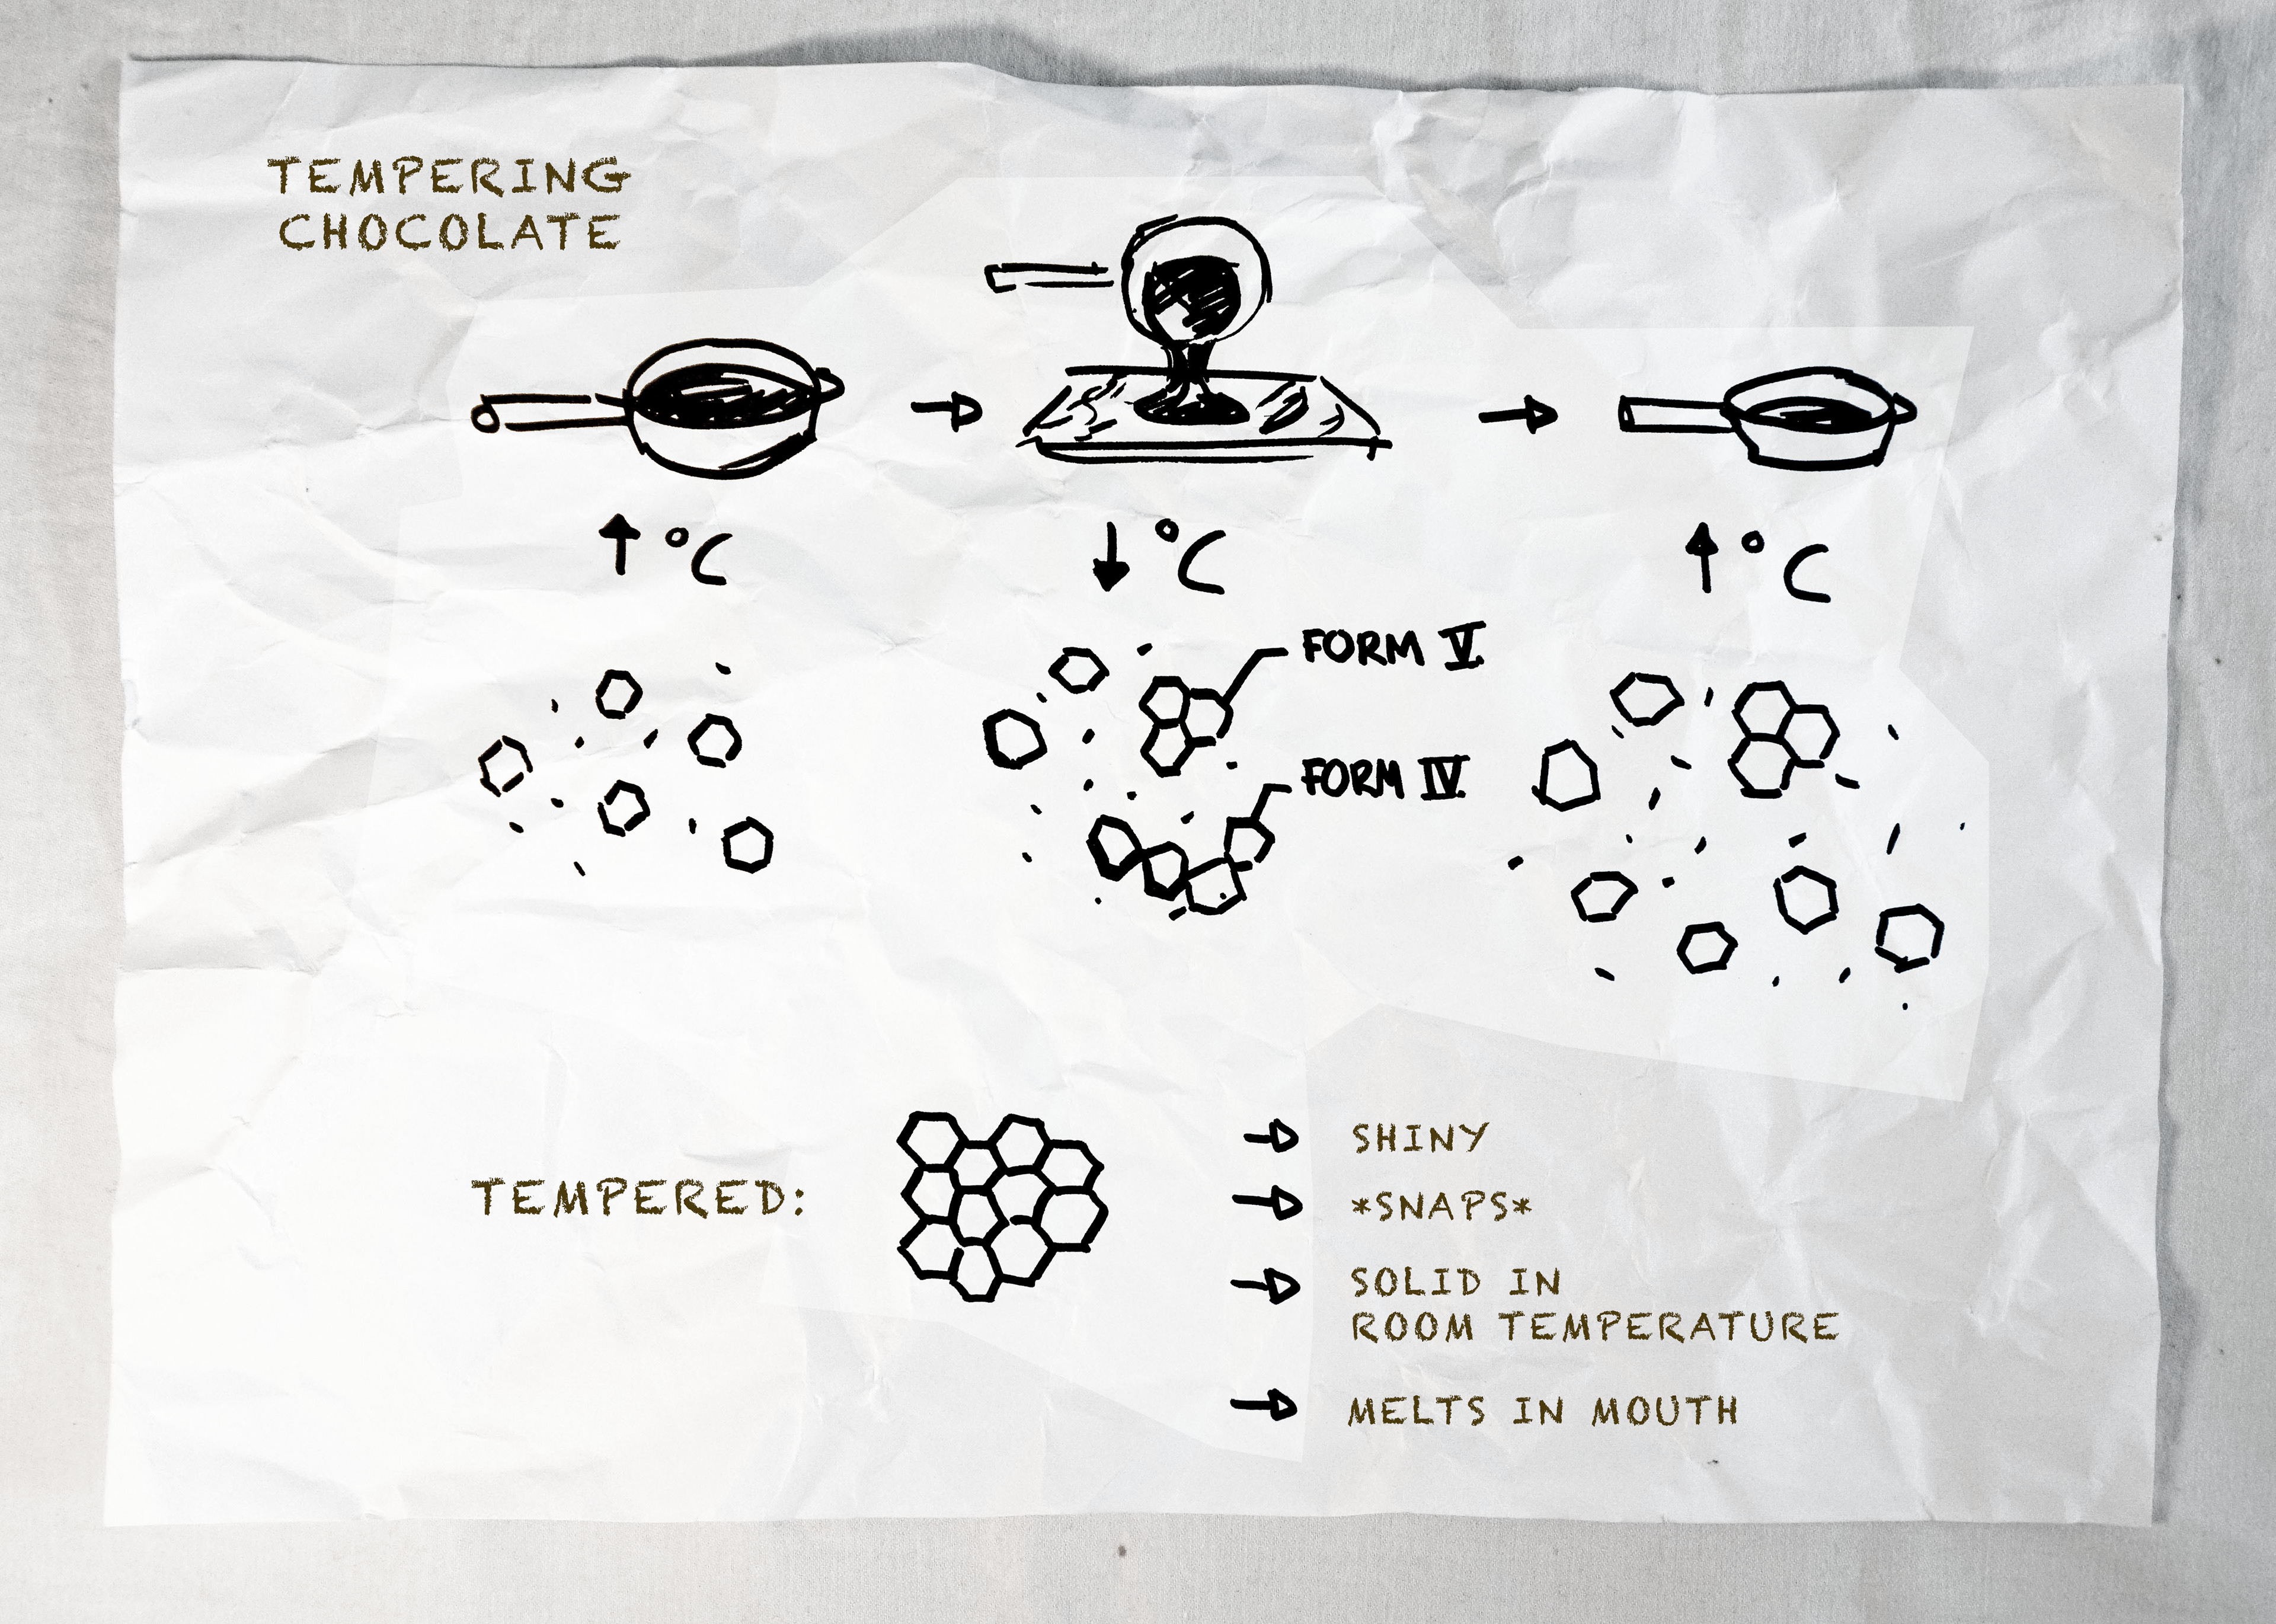 TEMPERING
CHOCOLATE
↑ °C
↓ °C
↑ °C
FORM V.
FORM IV.
TEMPERED:
→ SHINY
→ *SNAPS*
→ SOLID IN
ROOM TEMPERATURE
→ MELTS IN MOUTH